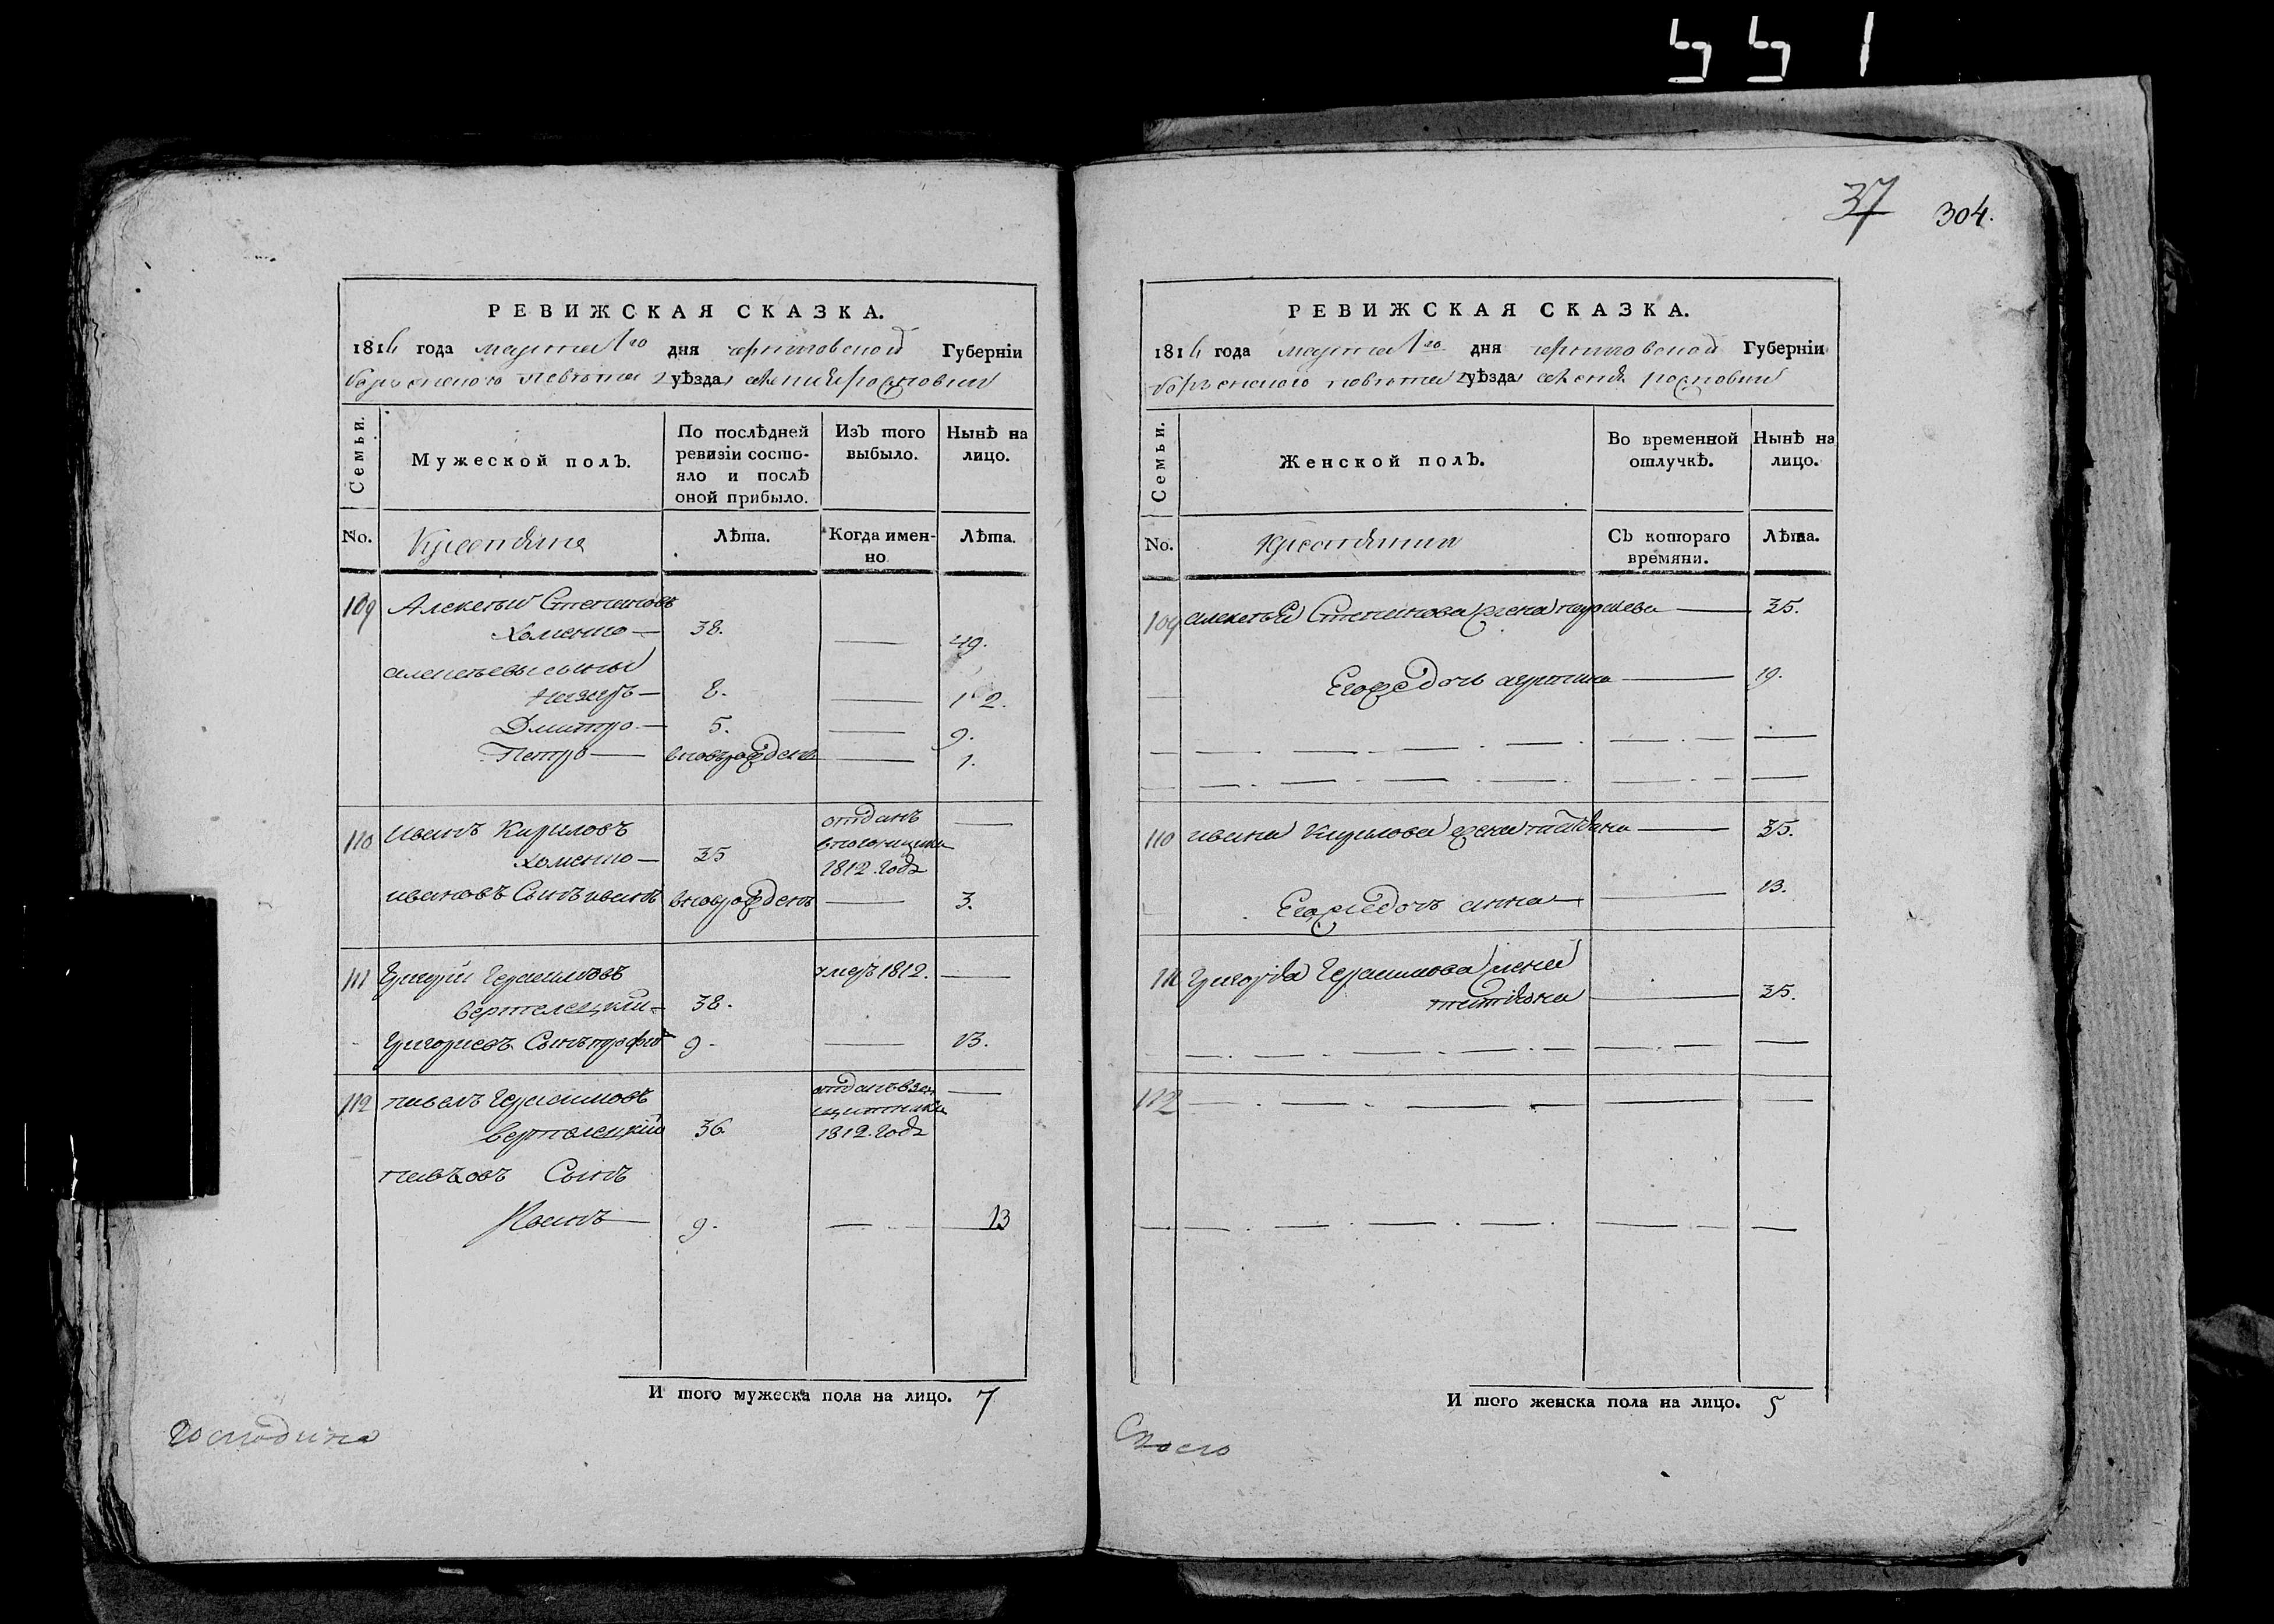 551
37 304.
РЕВИЖСКАЯ СКАЗКА.
1816 года марта 1го дня черниговской Губерніи
борзенского повѣта уѣзда
Семьи.
Мужеской полъ.
По послѣдней ревизіи состояло и послѣ оной прибыло.
Изъ того выбыло.
Нынѣ на лицо.
No.
Крестяне
Лѣта.
Когда именно
Лѣта.
109 Алексѣй Степановъ
Хоменко — 38. — 49.
алексѣевы сыны
Назаръ — 8. — 12.
Дмитро — 5. — 9.
Петро — вновьрожденъ — 1.
110 Иванъ Кириловъ
Хоменко — 35 отданъ
1812. годѣ —
ивановъ Сынъ иванъ вноврожденъ — 3.
111 Григорій Герасимовъ
вертелецкий — 38. умеръ 1812. —
Григориевъ Сынъ трофим 9 — 13.
112 павелъ Герасимовъ
вертелецкий 36 отданъ
1812. годѣ —
павловъ Сынъ
Иванъ — 9. — 13
И того мужеска пола на лицо. 7
Господина
РЕВИЖСКАЯ СКАЗКА.
1816 года марта 1го дня черниговской Губерніи
борзенского повѣта уѣзда
Семьи.
Женской полъ.
Во временной отлучкѣ.
Нынѣ на лицо.
No.
Крестянки
Съ котораго времяни.
Лѣта.
109 алексѣя Степанова жена — 35.
Его дочь — 19.
110 ивана Кирилова жена татияна — 35.
Его дочь анна — 13.
111 Григорія Герасимова жена
татияна — 35.
112 —
И того женска пола на лицо. 5
Своего